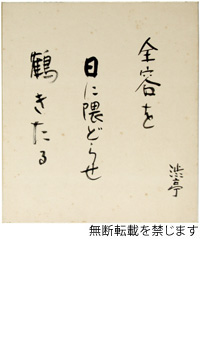 全容を
日に隈どらせ
鶴きたる
渋亭
無断転載を禁じます